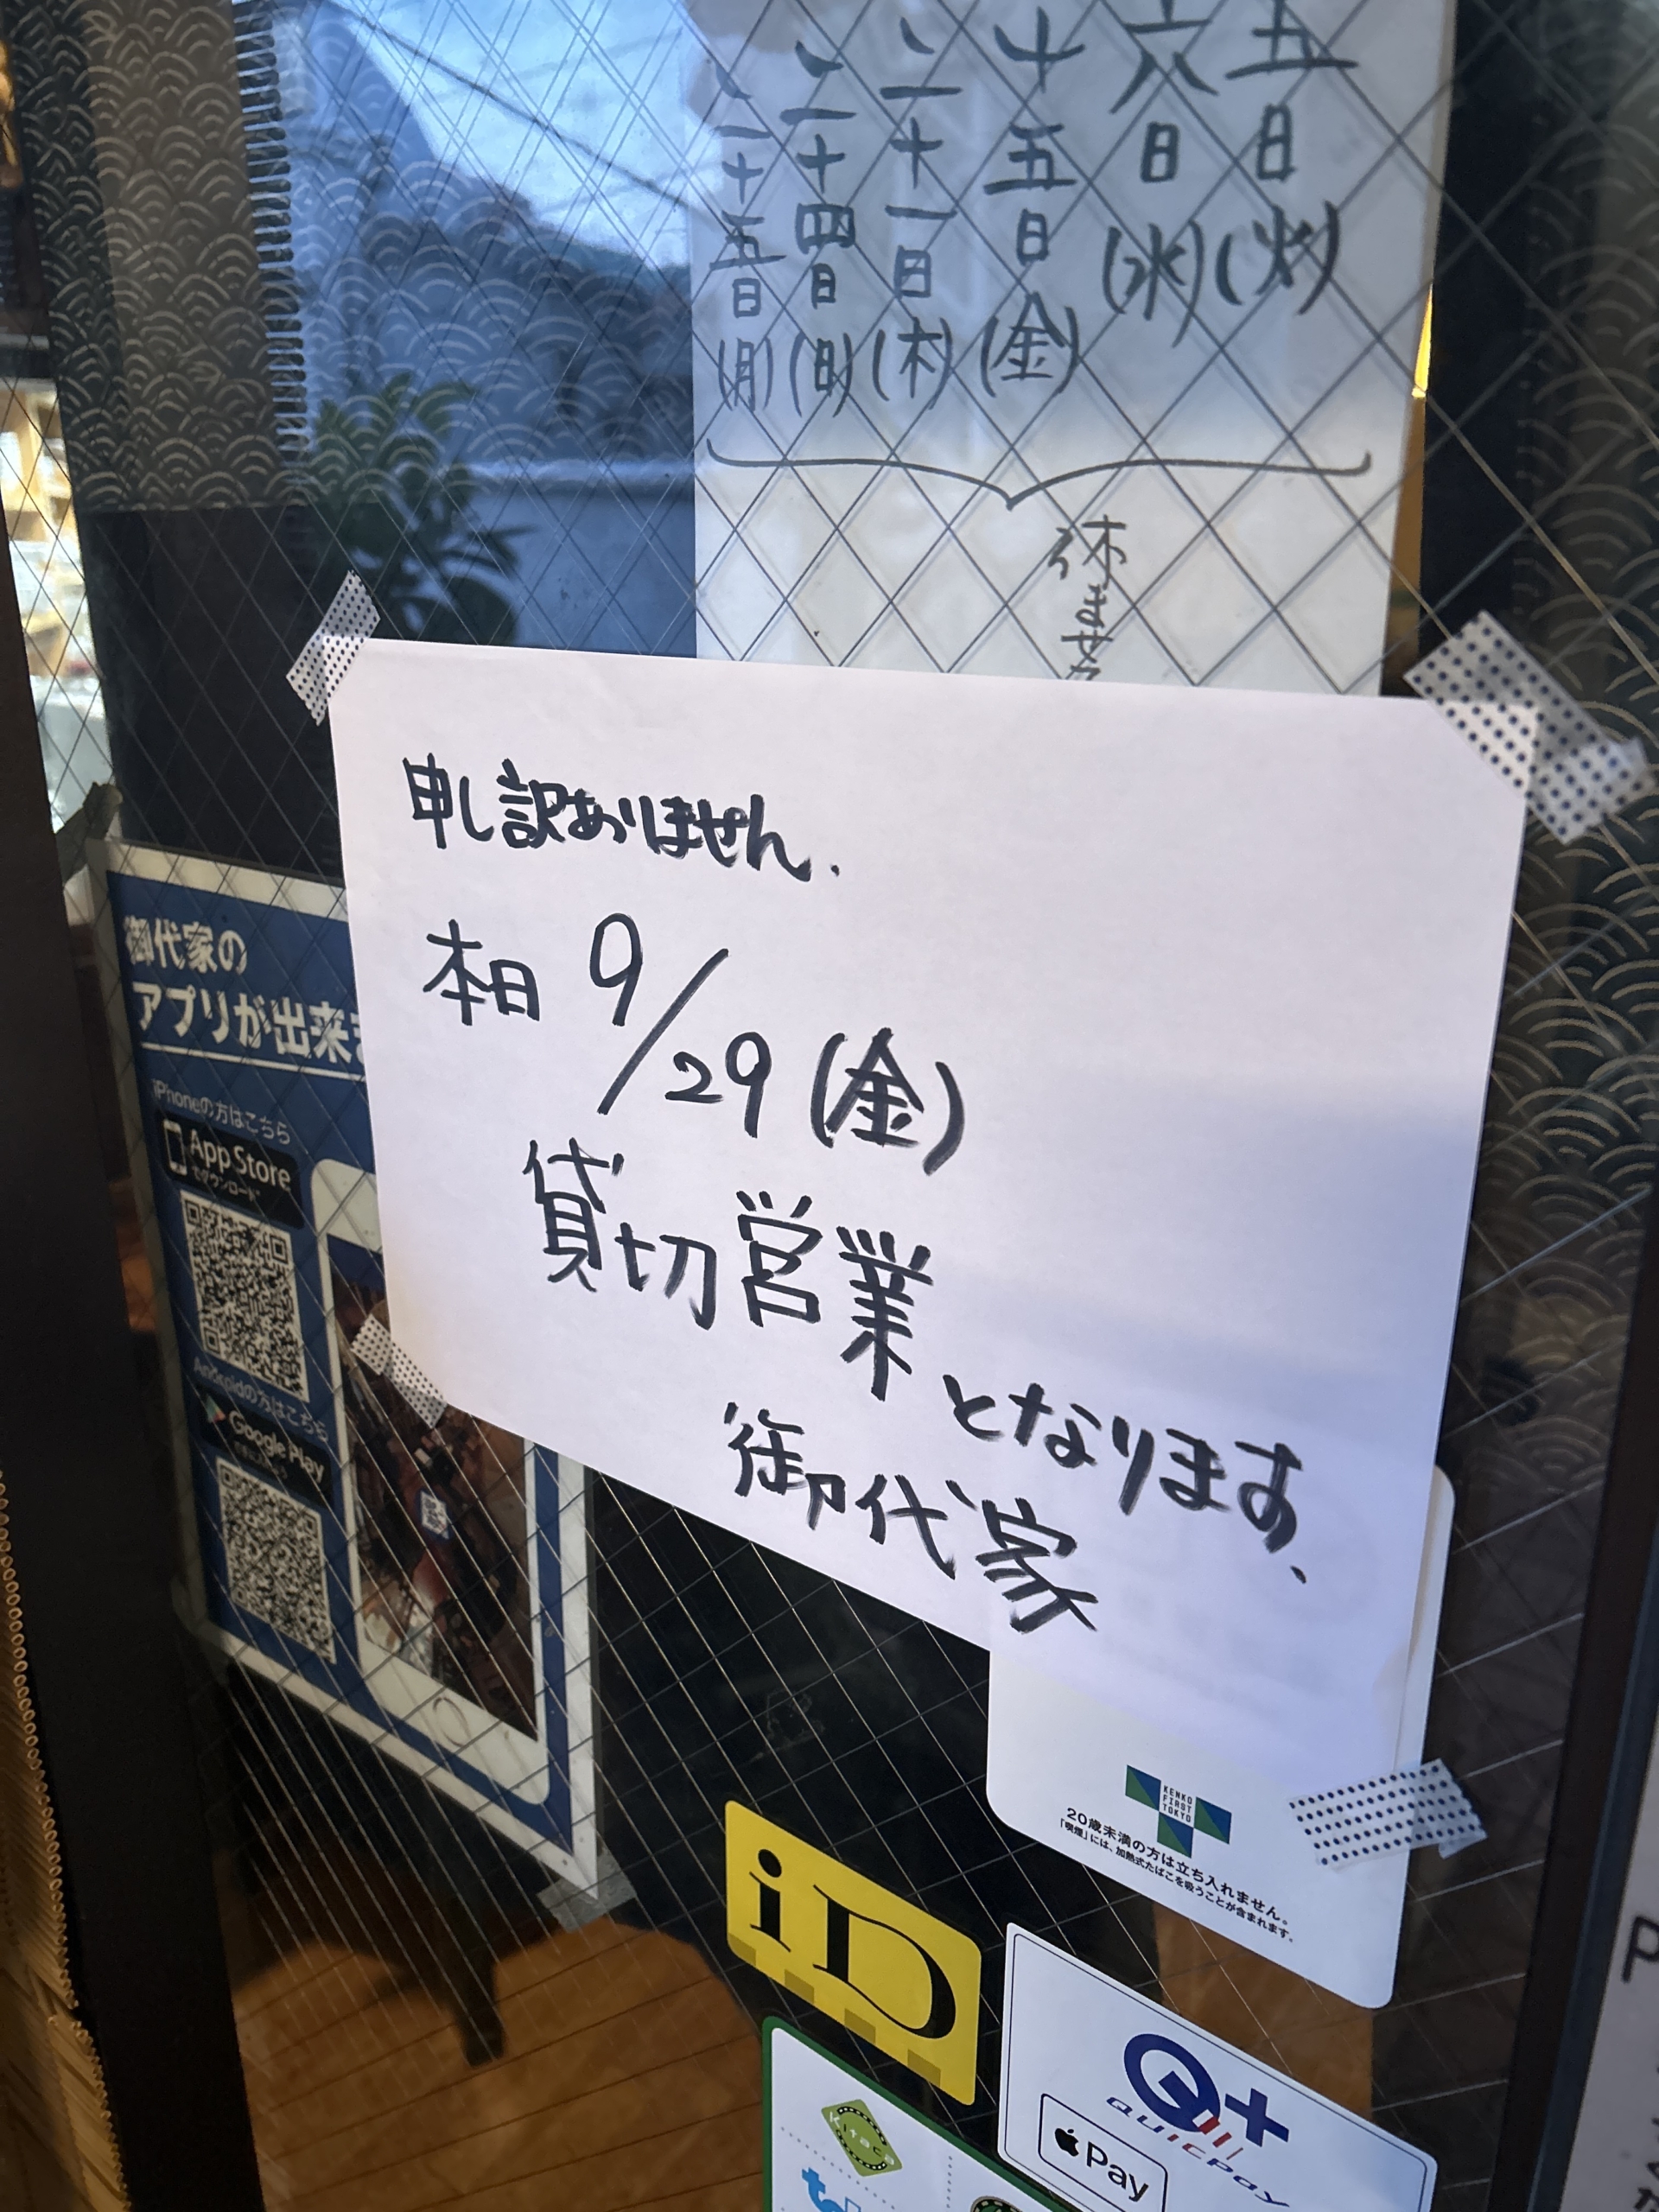 五日(火)
六日(水)
十五日(金)
二十一日(木)
二十四日(日)
二十五日(月)
申し訳ありません.
本日 9/29(金)
貸切営業となります、
御代家
御代家の
アプリが出来ま
iPhoneの方はこちら
App Store
でダウンロード
Androidの方はこちら
Google Play
KENKO
FIRST
TOKYO
20歳未満の方は立ち入れません。
「喫煙」には、加熱式たばこを吸うことが含まれます。
iD
Q+
QUICPay
Pay
Kitaca
P